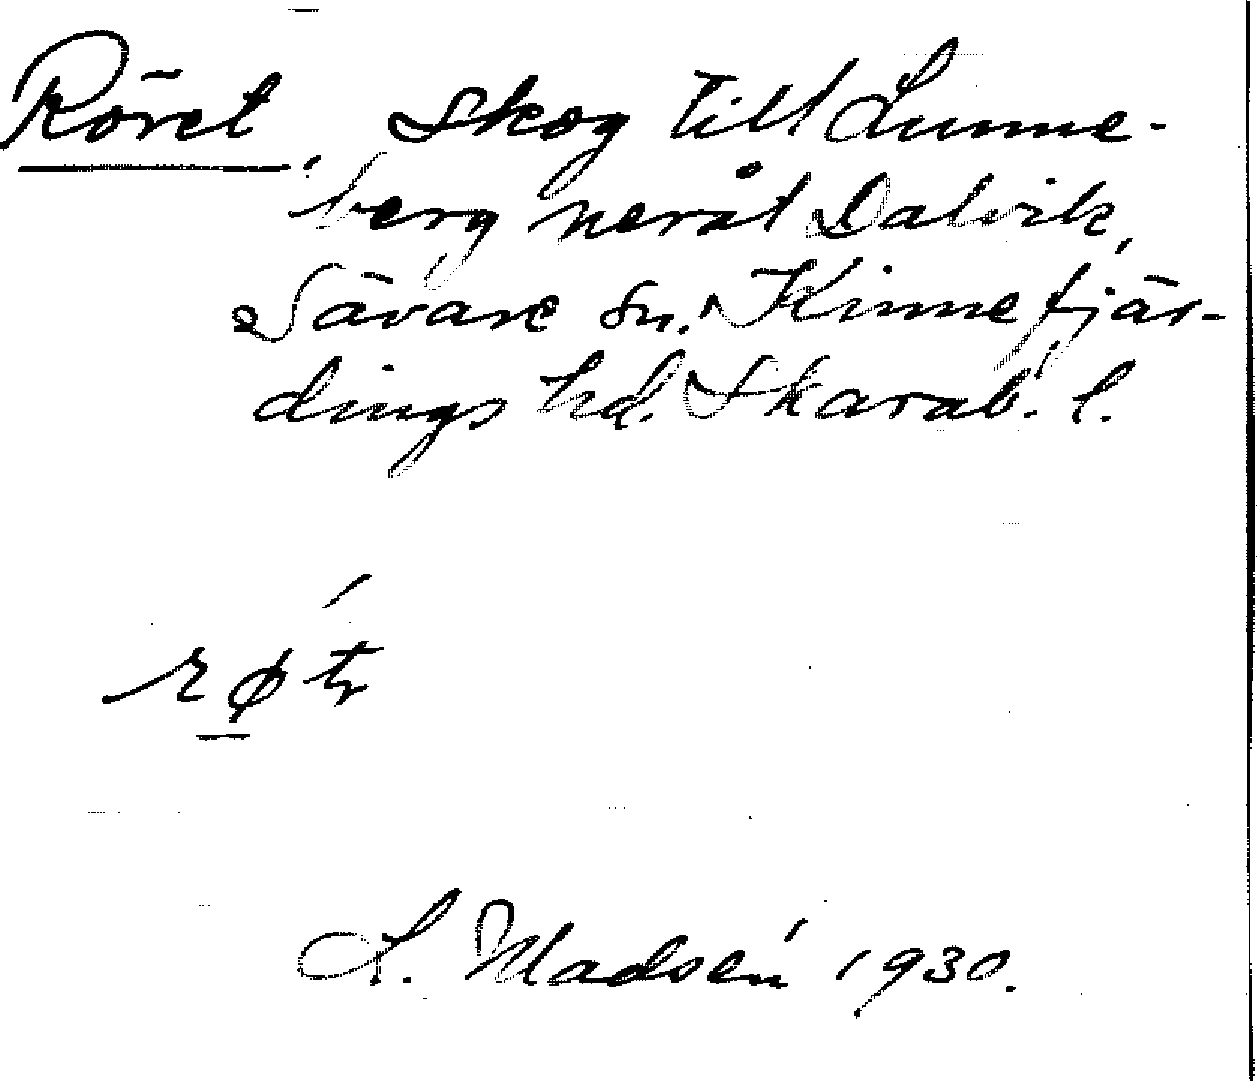 Röret, skog till Lunne-
berg neråt Dalvik,
Sävare sn. Kinnefjär-
dings hd. Skarab. l.
L. Madsén 1930.